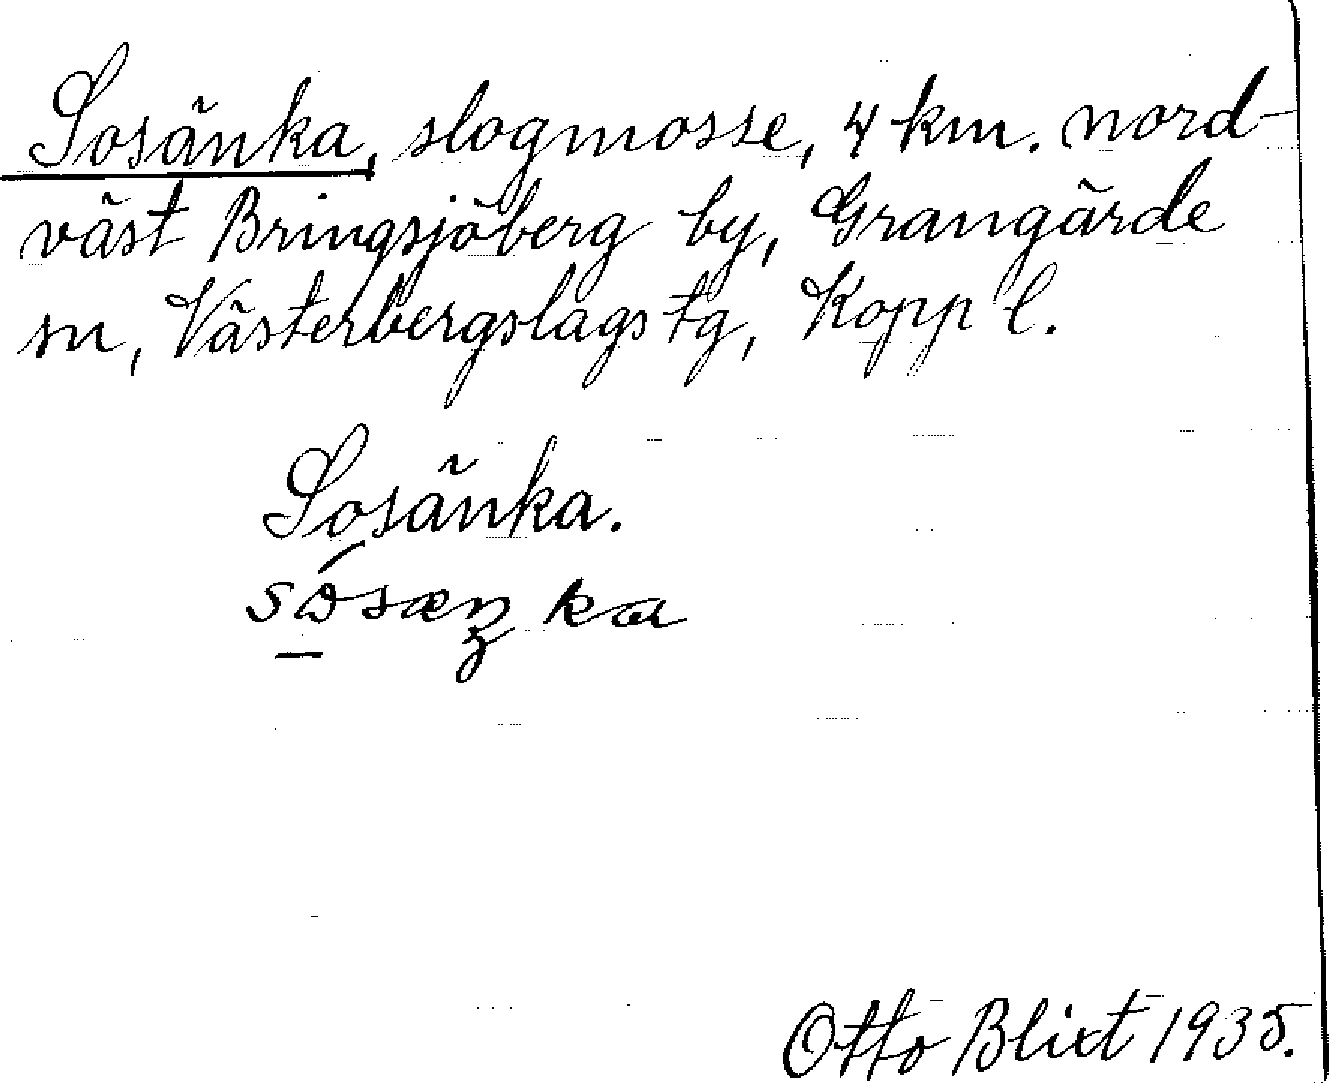 Sosänka, slogmosse, 4 km. nord-
väst Bringsjöberg by, Grangärde
sn, Västerbergslags tg, Kopp l.
Sosänka.
Otto Blixt 1935.